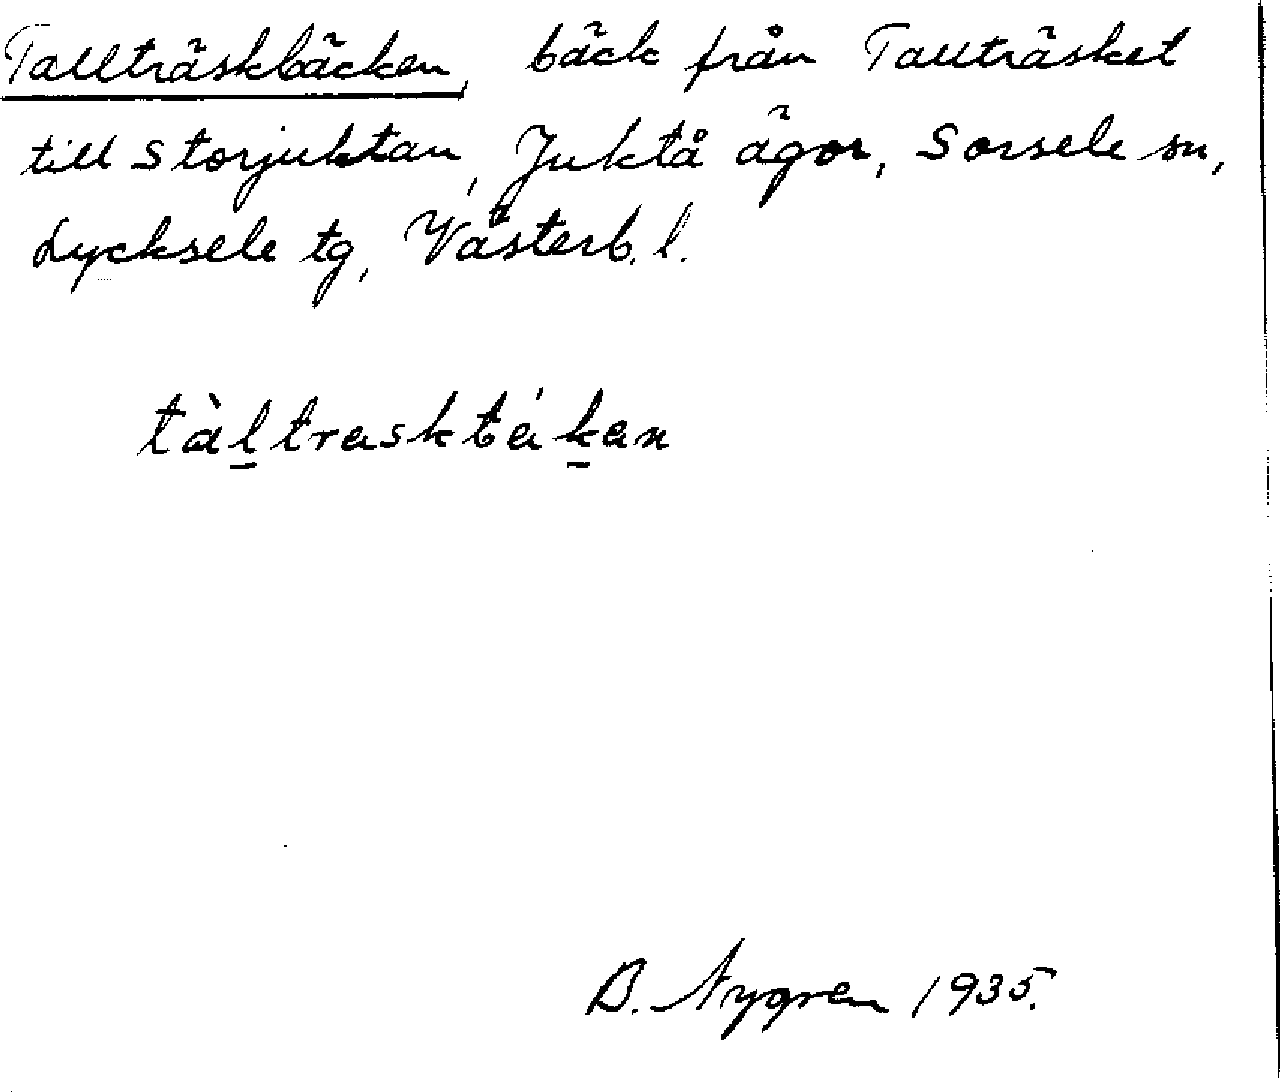 Tallträskbäcken, bäck från Tallträsket
till Storjuktan, Juktå ägor, Sorsele sn,
Lycksele tg, Västerb. l.
tàl̲traskbák̲an
B. Nygren 1935.